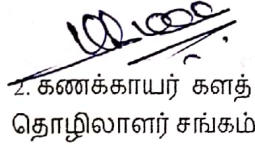 2. கணக்காயர் களத்
தொழிலாளர் சங்கம்